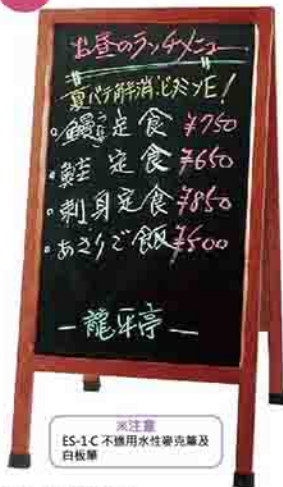 お昼のランチメニュー
夏バテ解消ビタミンE!
鰻定食 ¥750
・鮭定食 ¥650
・刺身定食 ¥850
・あさりご飯 ¥500
—龍牙亭—
※注意
ES-1-C 不適用水性麥克筆及
白板筆